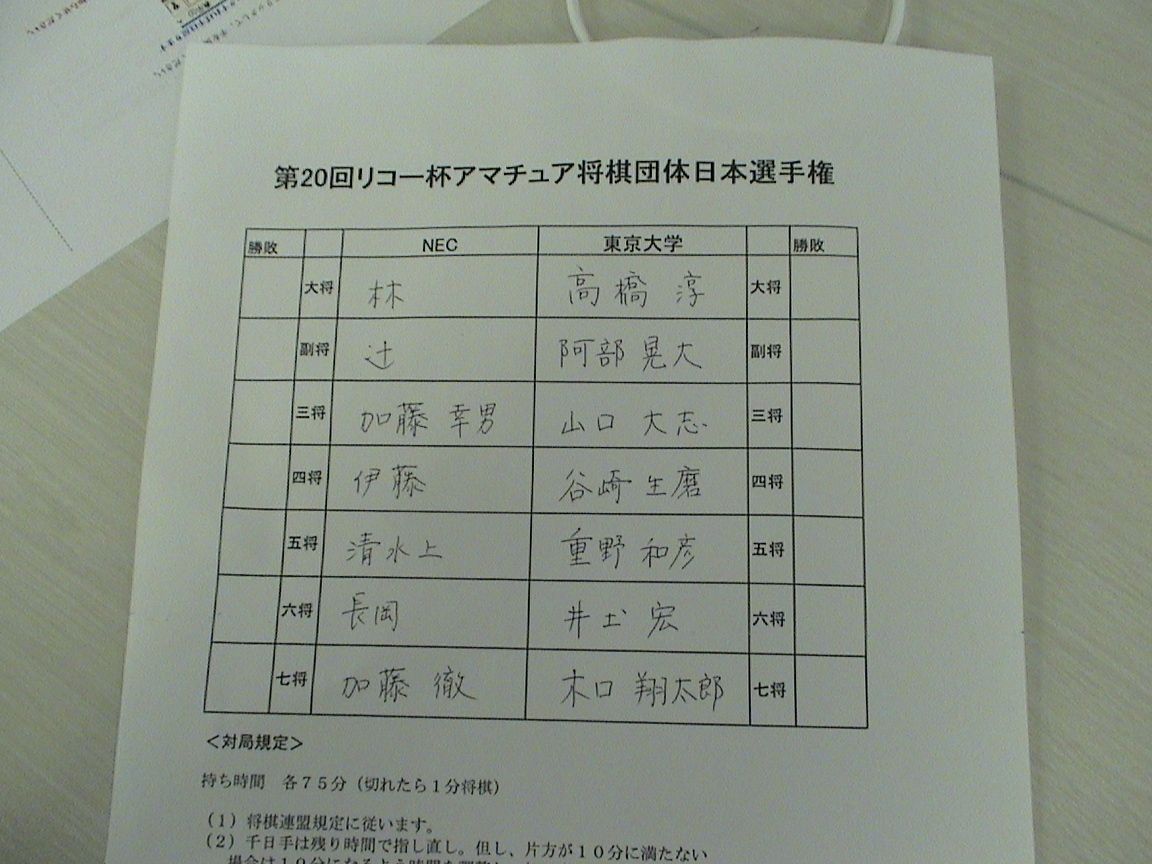 第20回リコー杯アマチュア将棋団体日本選手権
勝敗 NEC 東京大学 勝敗
大将 林 高橋 淳 大将
副将 辻 阿部 晃大 副将
三将 加藤 幸男 山口 大志 三将
四将 伊藤 谷崎 生磨 四将
五将 清水上 重野 和彦 五将
六将 長岡 井土 宏 六将
七将 加藤 徹 木口 翔太郎 七将
<対局規定>
持ち時間 各75分(切れたら1分将棋)
(1)将棋連盟規定に従います。
(2)千日手は残り時間で指し直し。但し、片方が10分に満たない
場合は10分になるよう時間を